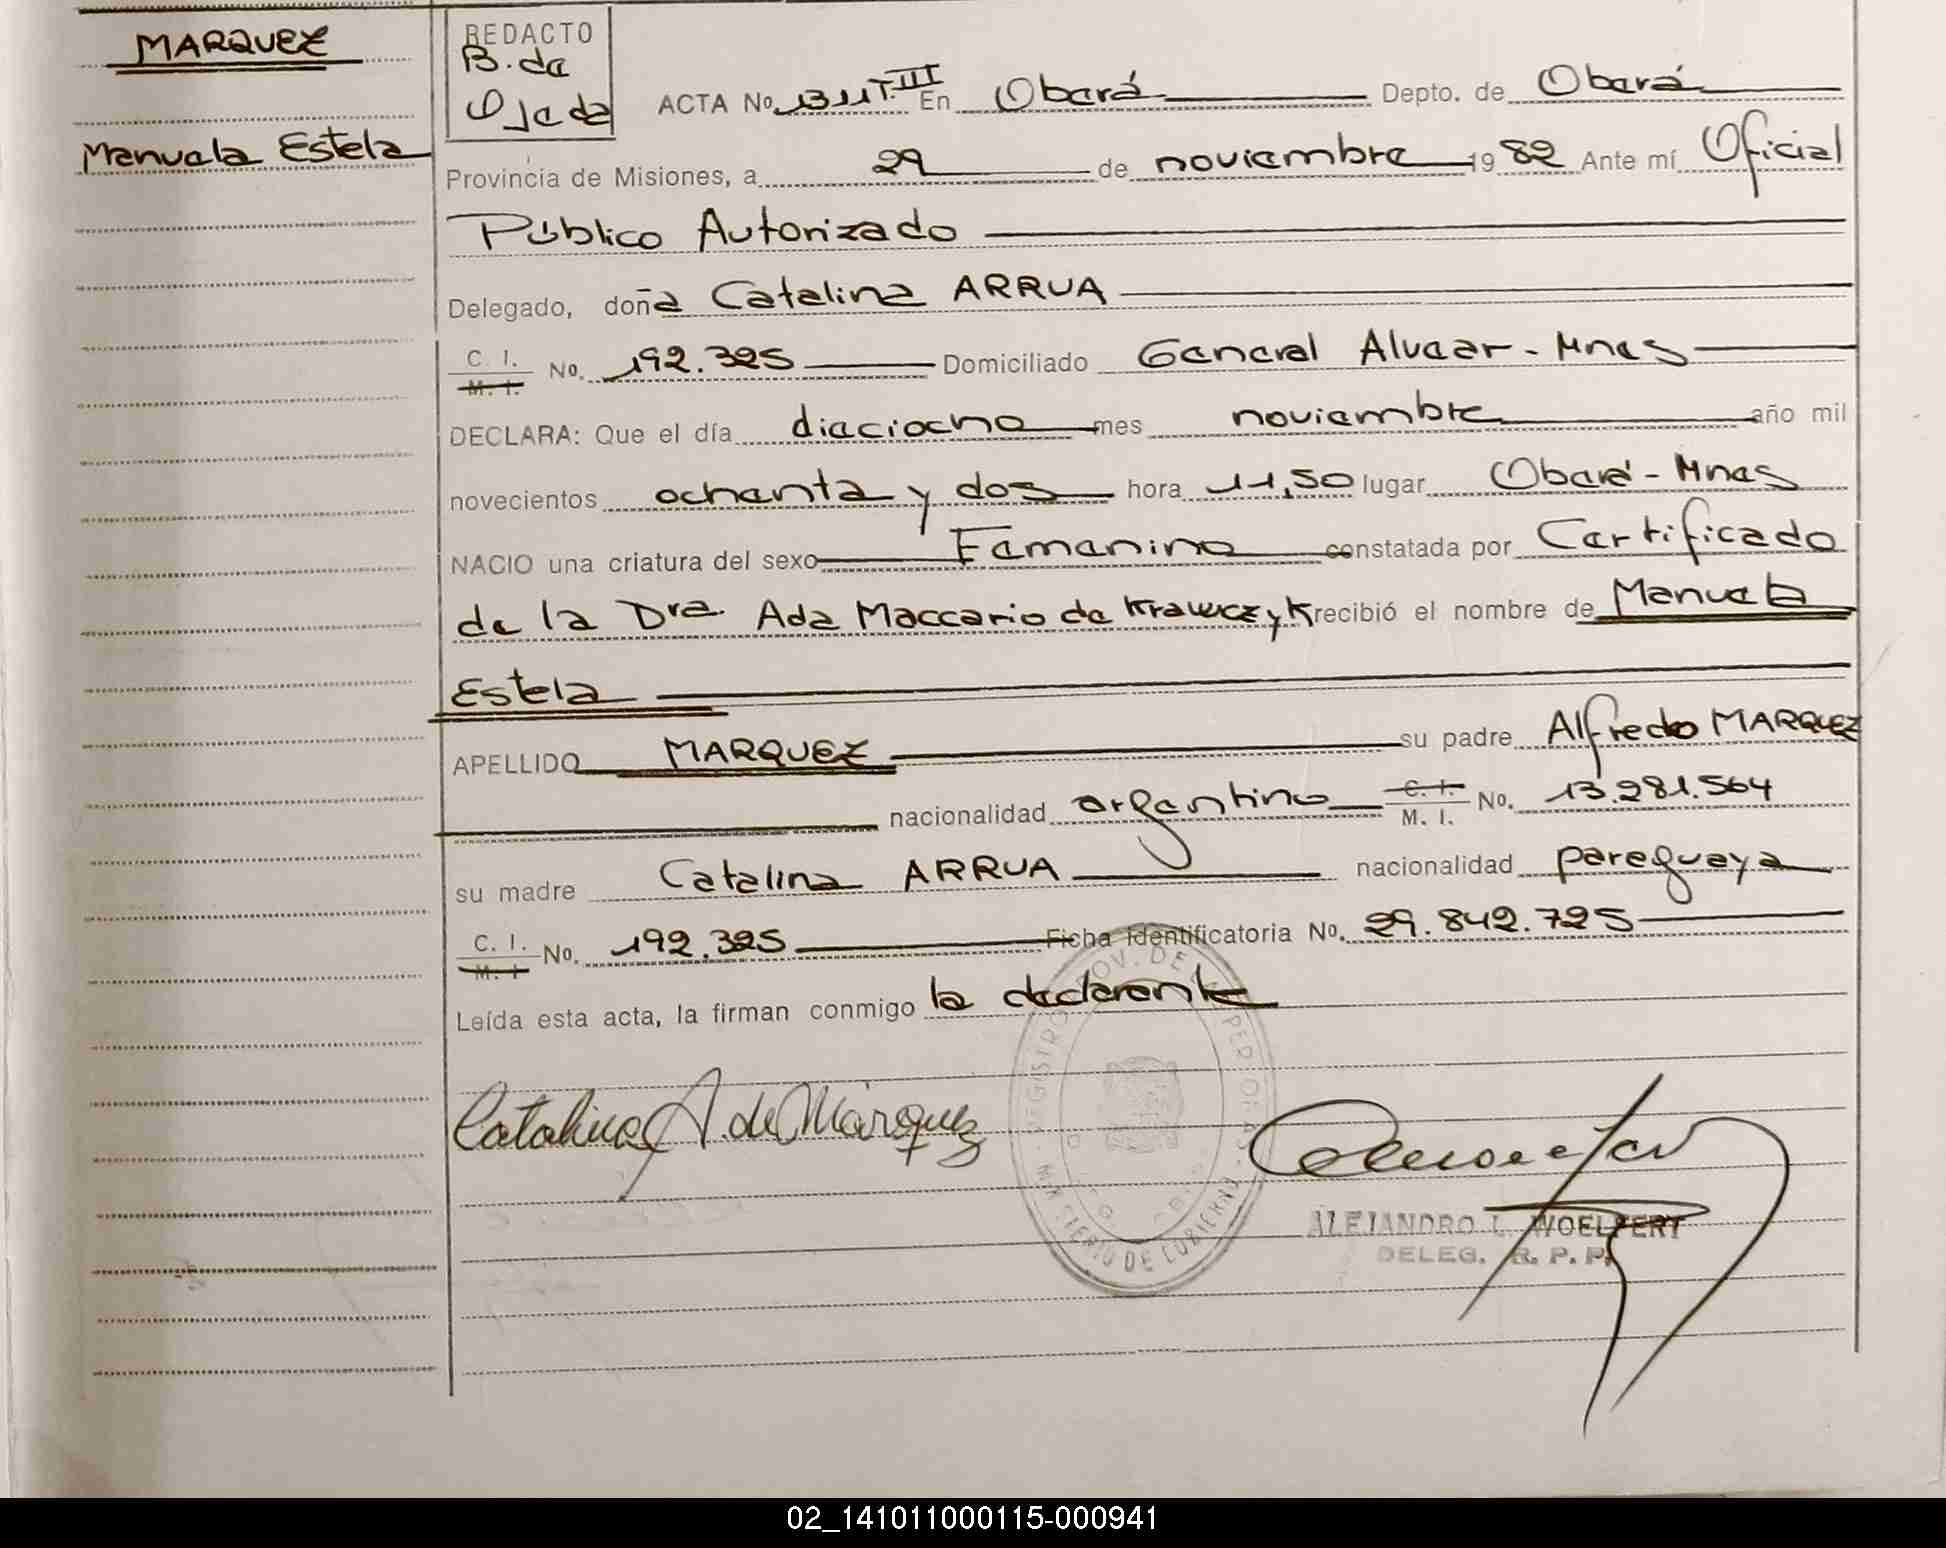 MARQUEZ
Manuela Estela
REDACTO
B. de
Ojeda
ACTA No. 1311T.III En Oberá Depto. de Oberá
Provincia de Misiones, a 29 de noviembre 19 82 Ante mí Oficial
Público Autorizado
Delegado, doña Catalina ARRUA
C. I. M. I. No. 192.325 Domiciliado General Alvear - Mnes
DECLARA: Que el día dieciocho mes noviembre año mil
novecientos ochenta y dos hora 11,50 lugar Oberá - Mnes
NACIO una criatura del sexo Femenino constatada por Certificado
de la Dra. Ada Maccario de Krawczyk recibió el nombre de Manuela
Estela
APELLIDO MARQUEZ su padre Alfredo MARQUEZ
nacionalidad argentino C. I. M. I. No. 13.281.564
su madre Catalina ARRUA nacionalidad paraguaya
C. I. M. I No. 192.325 Ficha identificatoria No. 29.842.725
Leída esta acta, la firman conmigo la declarante
Catalina A. de Marquez
ALEJANDRO L. WOELFERT
DELEG. R. P. P.
02_141011000115-000941